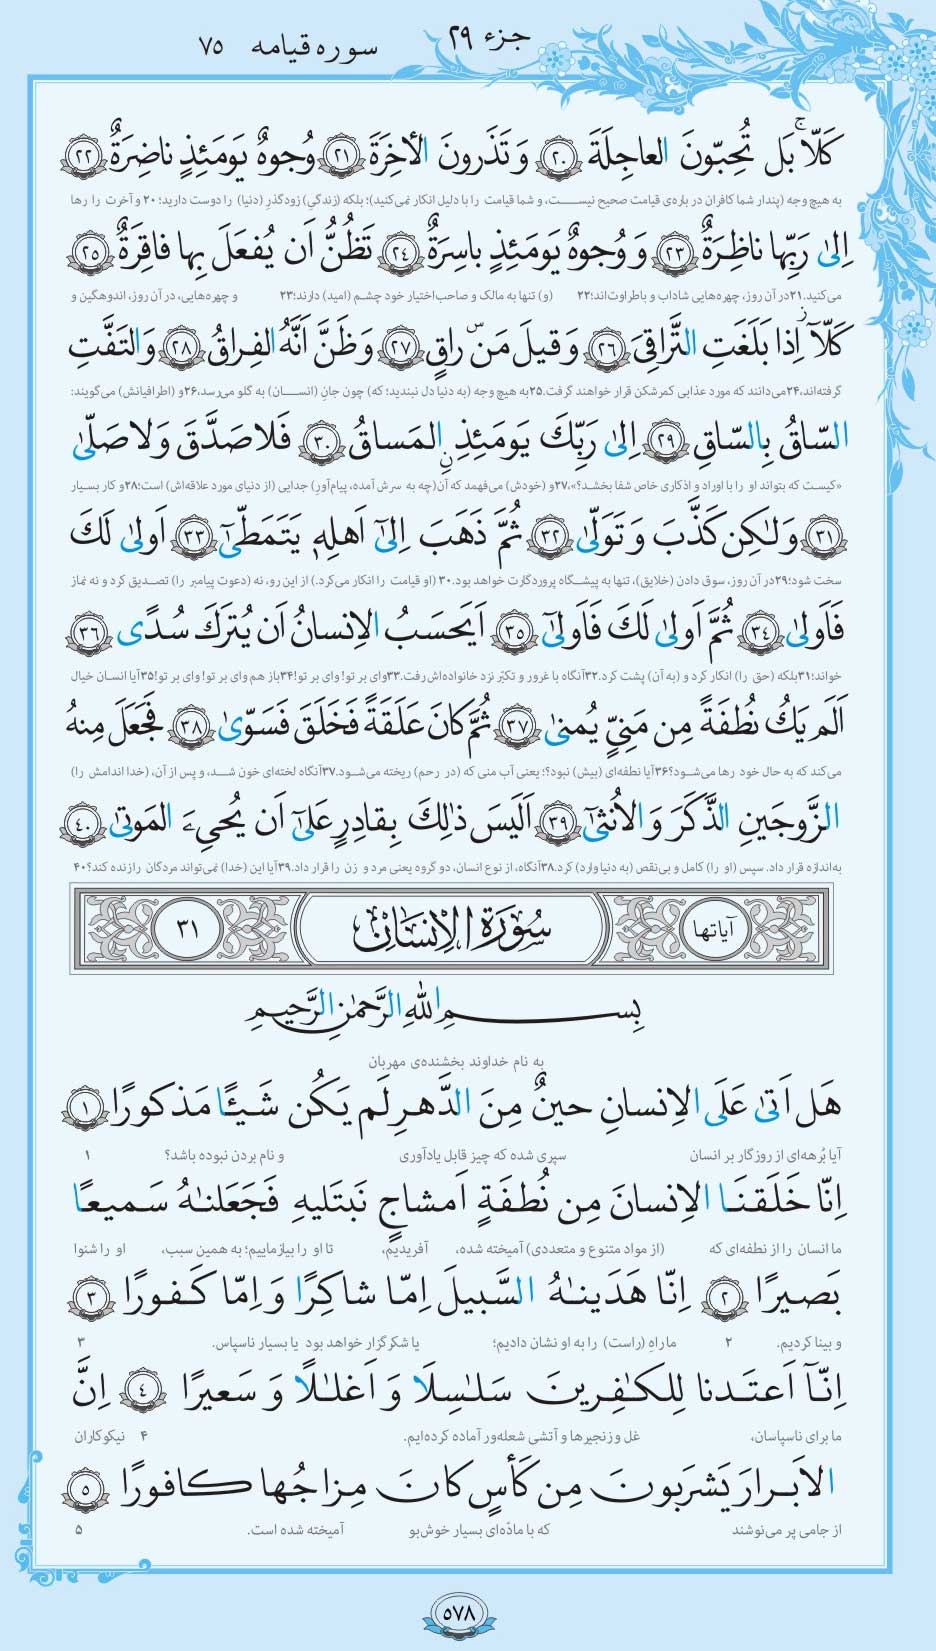 جزء ۲۹
سوره قیامه ۷۵
كَلّا بَل تُحِبّونَ العاجِلَةَ ۲۰ وَ تَذَرونَ الأخِرَةَ ۲۱ وُجوهٌ يَومَئِذٍ ناضِرَةٌ ۲۲
به هیچ وجه (پندار شما کافران در باره‌ی قیامت صحیح نیست، و شما قیامت را با دلیل انکار نمی‌کنید)؛ بلکه (زندگیِ) زودگذرِ (دنیا) را دوست دارید؛ ۲۰ و آخرت را رها
اِلىٰ رَبِّها ناظِرَةٌ ۲۳ وَ وُجوهٌ يَومَئِذٍ باسِرَةٌ ۲۴ تَظُنُّ اَن يُفعَلَ بِها فاقِرَةٌ ۲۵
می‌کنید.۲۱در آن روز، چهره‌هایی شاداب و باطراوت‌اند؛۲۲ (و) تنها به مالک و صاحب‌اختیار خود چشم (امید) دارند؛۲۳ و چهره‌هایی، در آن روز، اندوهگین و
كَلّآ اِذا بَلَغَتِ التَّراقِيَ ۲۶ وَ قيلَ مَن راقٍ ۲۷ وَ ظَنَّ اَنَّهُ الفِراقُ ۲۸ وَ التَفَّتِ
گرفته‌اند،۲۴می‌دانند که مورد عذابی کمرشکن قرار خواهند گرفت.۲۵به هیچ وجه (به دنیا دل نبندید؛ که) چون جانِ (انسان) به گلو می‌رسد،۲۶و (اطرافیانش) می‌گویند:
السّاقُ بِالسّاقِ ۲۹ اِلىٰ رَبِّكَ يَومَئِذٍ المَساقُ ۳۰ فَلا صَدَّقَ وَ لا صَلّىٰ
«کیست که بتواند او را با اوراد و اذکاری خاص شفا بخشد؟»،۲۷و (خودش) می‌فهمد که آن(چه به سرش آمده، پیام‌آورِ) جدایی (از دنیای مورد علاقه‌اش) است؛۲۸و کار بسیار
۳۱ وَ لٰكِن كَذَّبَ وَ تَوَلّىٰ ۳۲ ثُمَّ ذَهَبَ اِلىٰٓ اَهلِهٖ يَتَمَطّىٰٓ ۳۳ اَولىٰ لَكَ
سخت شود؛۲۹در آن روز، سوق دادن (خلایق)، تنها به پیشگاه پروردگارت خواهد بود.۳۰ (او قیامت را انکار می‌کرد.) از این رو، نه (دعوت پیامبر را) تصدیق کرد و نه نماز
فَاَولىٰ ۳۴ ثُمَّ اَولىٰ لَكَ فَاَولىٰٓ ۳۵ اَيَحسَبُ الاِنسانُ اَن يُترَكَ سُدًى ۳۶
خواند؛۳۱بلکه (حق را) انکار کرد و (به آن) پشت کرد.۳۲آنگاه با غرور و تکبّر نزد خانواده‌اش رفت.۳۳وای بر تو! وای بر تو!۳۴باز هم وای بر تو! وای بر تو!۳۵آیا انسان خیال
اَلَم يَكُ نُطفَةً مِن مَنِيٍّ يُمنىٰ ۳۷ ثُمَّ كانَ عَلَقَةً فَخَلَقَ فَسَوّىٰ ۳۸ فَجَعَلَ مِنهُ
می‌کند که به حال خود رها می‌شود؟۳۶آیا نطفه‌ای (بیش) نبود؟؛ یعنی آب منی که (در رحم) ریخته می‌شود.۳۷آنگاه لخته‌ای خون شد، و پس از آن، (خدا اندامش را)
الزَّوجَينِ الذَّكَرَ وَ الاُنثىٰٓ ۳۹ اَلَيسَ ذٰلِكَ بِقادِرٍ عَلىٰٓ اَن يُحيِيَ المَوتىٰ ۴۰
به‌اندازه قرار داد. سپس (او را) کامل و بی‌نقص (به دنیا وارد) کرد.۳۸آنگاه، از نوع انسان، دو گروه یعنی مرد و زن را قرار داد.۳۹آیا این (خدا) نمی‌تواند مردگان را زنده کند؟۴۰
آیاتها سُورَةُ الاِنسَان ۳۱
بِسمِ اللهِ الرَّحمٰنِ الرَّحيمِ
به نام خداوند بخشنده‌ی مهربان
هَل اَتىٰ عَلَى الاِنسانِ حينٌ مِنَ الدَّهرِ لَم يَكُن شَيـًٔا مَذكورًا ۱
آیا بُرهه‌ای از روزگار بر انسان سپری شده که چیز قابل یادآوری و نام بردن نبوده باشد؟ ۱
اِنّا خَلَقنَا الاِنسانَ مِن نُطفَةٍ اَمشاجٍ نَبتَليهِ فَجَعَلنٰهُ سَميعًا
ما انسان را از نطفه‌ای که (از مواد متنوع و متعددی) آمیخته شده، آفریدیم، تا او را بیازماییم؛ به همین سبب، او را شنوا
بَصيرًا ۲ اِنّا هَدَينٰهُ السَّبيلَ اِمّا شاكِرًا وَ اِمّا كَفورًا ۳
و بینا کردیم. ۲ ما راهِ (راست) را به او نشان دادیم؛ یا شکرگزار خواهد بود یا بسیار ناسپاس. ۳
اِنّآ اَعتَدنا لِلكٰفِرينَ سَلٰسِلَا وَ اَغلٰلًا وَ سَعيرًا ۴ اِنَّ
ما برای ناسپاسان، غل و زنجیرها و آتشی شعله‌ور آماده کرده‌ایم. ۴ نیکوکاران
الاَبرارَ يَشرَبونَ مِن كَأسٍ كانَ مِزاجُها كافورًا ۵
از جامی پر می‌نوشند که با مادّه‌ای بسیار خوش‌بو آمیخته شده است. ۵
۵۷۸